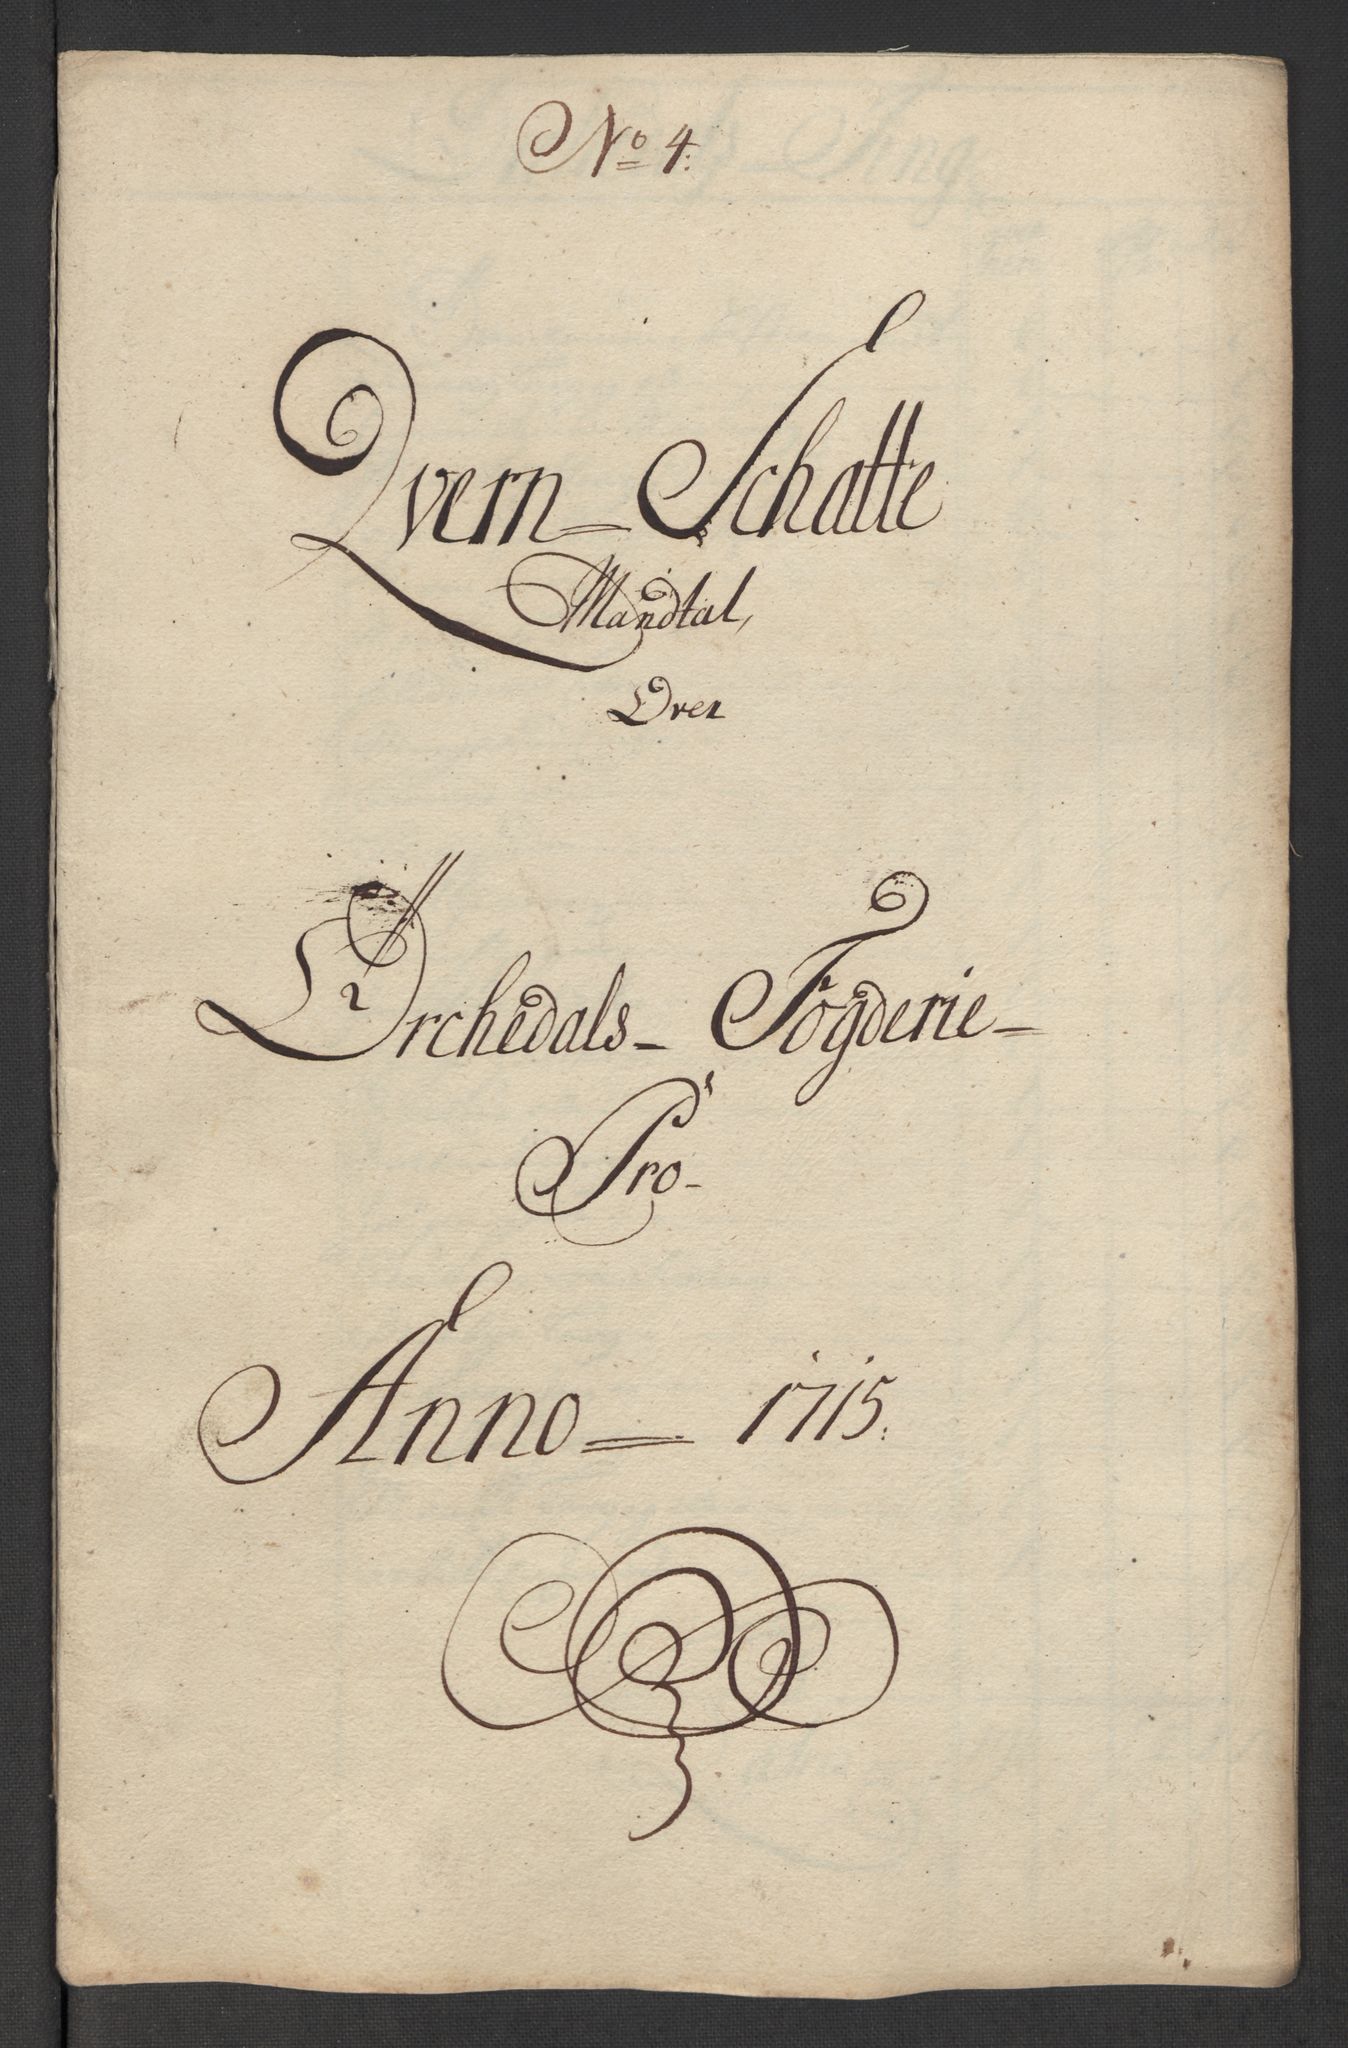 No 4:
Qvern_ Schatte
Mandtal,
Over
Orchedals_ Fogderie_
Pro_
Anno_ 1715.